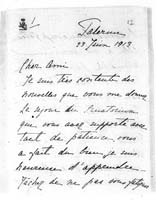 Palerme
23 Juin 1913
Cher Ami
Je suis très contente des
nouvelles que vous me donnez
Le séjour du Sanatorium
que vous avez supporté avec
tant de patience vous
a fait du bien je suis
heureuse d'apprendre
Tachez de ne pas vous fatiguer